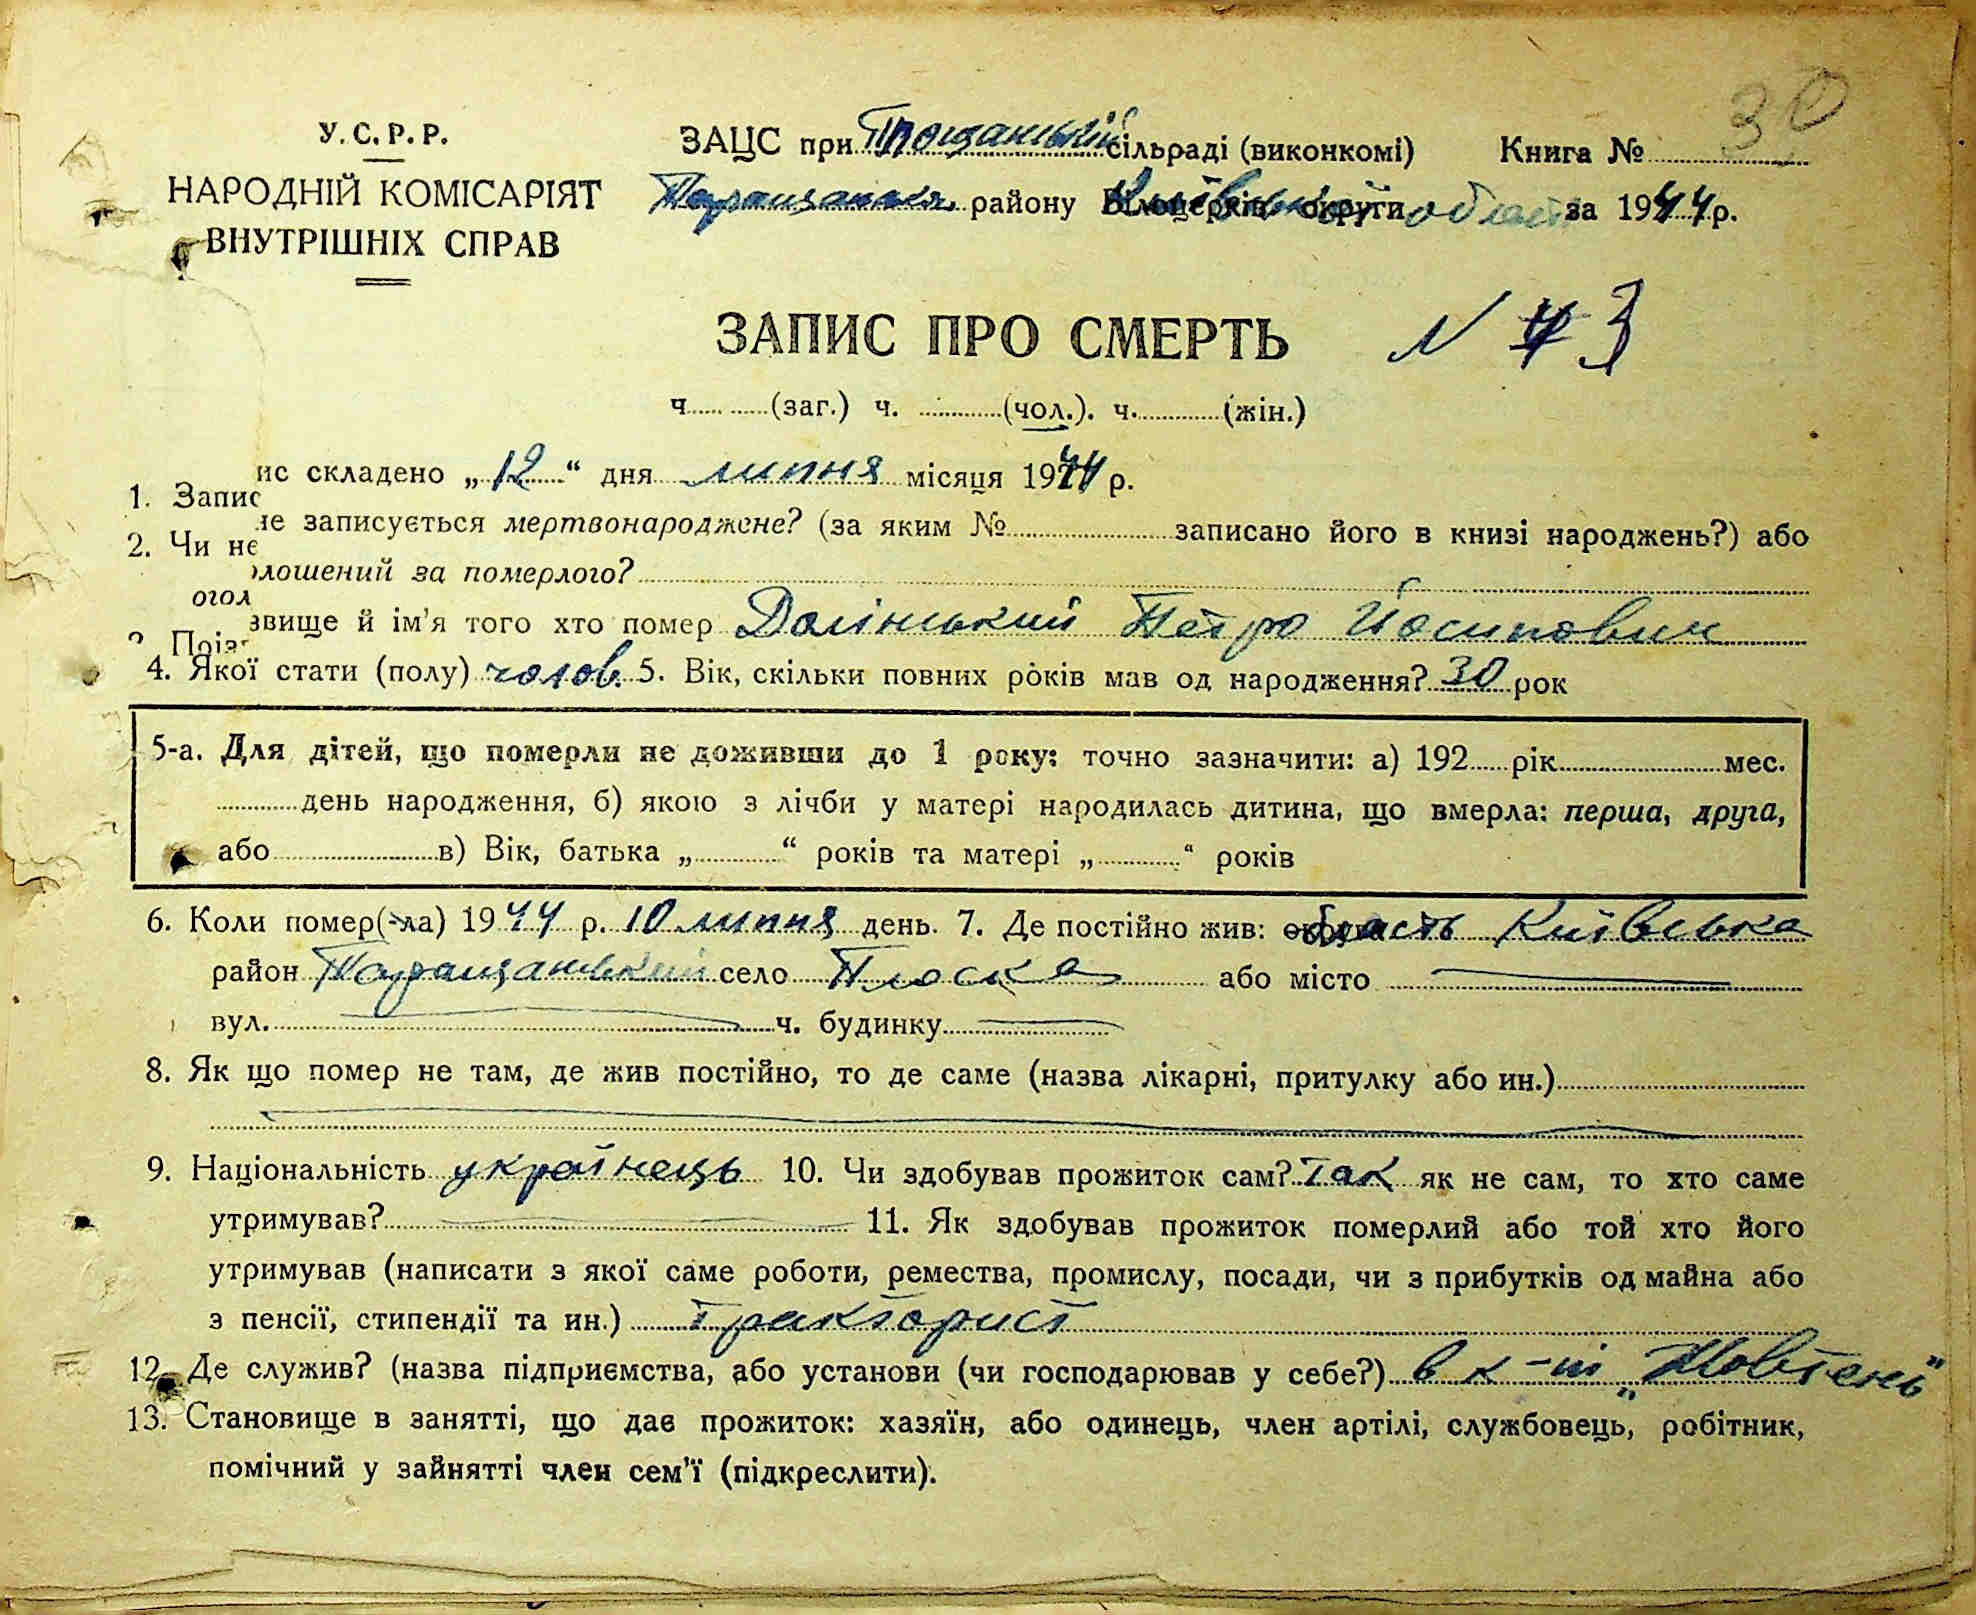 30
У.С.Р.Р.
НАРОДНІЙ КОМІСАРІЯТ
ВНУТРІШНІХ СПРАВ
ЗАЦС при сільраді (виконкомі) Книга №
району Білоцерків. округи за 1944 р.
ЗАПИС ПРО СМЕРТЬ N 4 3
ч. (заг.) ч. (чол.). ч. (жін.)
1. Запис складено „12“ дня липня місяця 1944 р.
2. Чи не записується мертвонароджене? (за яким № записано його в книзі народжень?) або
оголошений за померлого?
Прізвище й ім'я того хто помер Долінський Петро Йосипович
4. Якої стати (полу) чолов. 5. Вік, скільки повних років мав од народження? 30 рок
5-а. Для дітей, що померли не доживши до 1 року: точно зазначити: а) 192 рік мес.
день народження, б) якою з лічби у матері народилась дитина, що вмерла: перша, друга,
або в) Вік, батька „ “ років та матері „ “ років
6. Коли помер(-ла) 1944 р. 10 липня день. 7. Де постійно жив: область Київська
район Таращанський село Плоске або місто
вул. ч. будинку
8. Як що помер не там, де жив постійно, то де саме (назва лікарні, притулку або ин.)
9. Національність українець 10. Чи здобував прожиток сам? Так як не сам, то хто саме
утримував? 11. Як здобував прожиток померлий або той хто його
утримував (написати з якої саме роботи, ремества, промислу, посади, чи з прибутків од майна або
з пенсії, стипендії та ин.) тракторист
12. Де служив? (назва підприємства, або установи (чи господарював у себе?) в к-пі „Жовтень“
13. Становище в занятті, що дає прожиток: хазяїн, або одинець, член артілі, службовець, робітник,
помічний у зайнятті член сем'ї (підкреслити).